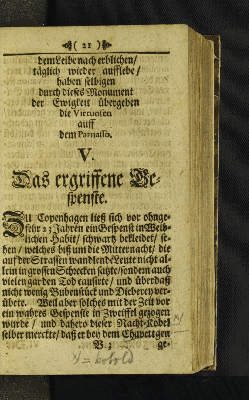 ( 21 )
dem Leibe nach erblichen/
täglich wieder aufflebe/
haben selbigen
durch dieses Monument
der Ewigkeit übergeben
die Virtuosen
auff
dem Parnasso.
V.
Das ergriffene Ge-
spenste.
ZU Copenhagen ließ sich vor ohnge-
fehr 23 Jahren ein Gespenst in Weib-
lichen Habit/ schwartz bekleidet/ se-
hen/ welches biß um die Mitternacht/ die
auf der Strassen wandlende Leute nicht al-
lein in grossen Schrecken satzte/ sondern auch
vielen gar den Tod causirte/ und überdaß
nicht wenig Bubenstück und Diebereyen ver-
übete. Weil aber solches mit der Zeit vor
ein wahres Gespenste in Zweiffel gezogen
wurde/ und dahero dieser Nacht-Kobel
selber merckte/ daß er bey dem
B 3 ge-
kobold